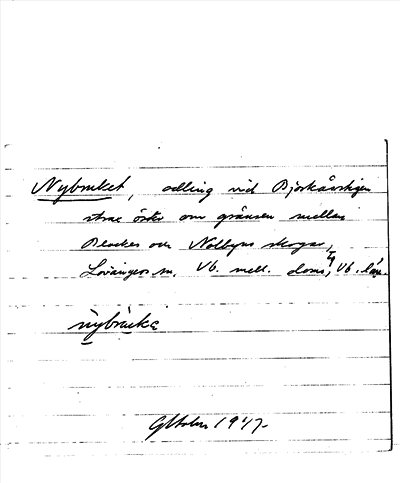 Nybruket, odling vid Björkåvägen
strax öster om gränsen mellan
Blackes och Nolbyns skogar,
Lövångers sn. Vb. mell. doms., Vb. län.
nybrucka
GHolm 1947